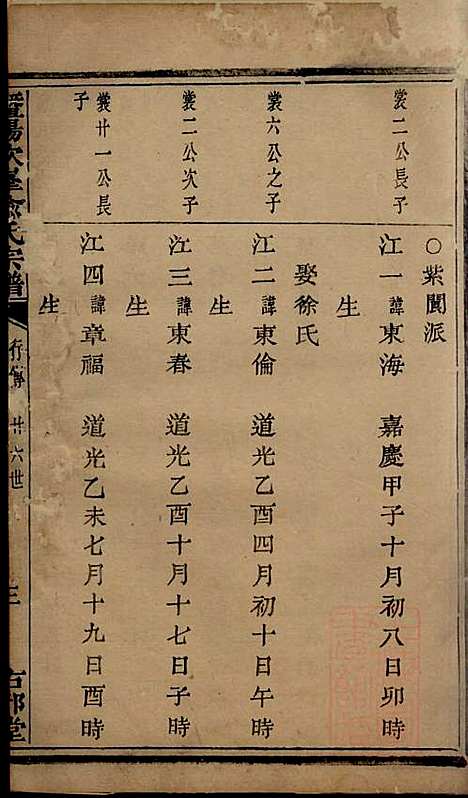 ○紫閬派
裳二公長子
江一諱東海 嘉慶甲子十月初八日卯時
生
娶徐氏
裳六公之子
江二諱東倫 道光乙酉四月初十日午時
生
裳二公次子
江三諱東春 道光乙酉十月十七日子時
生
裳廿一公長
子
江四諱章福 道光乙未七月十九日酉時
生
暨陽次峯俞氏宗譜
行傳 廿六世
三